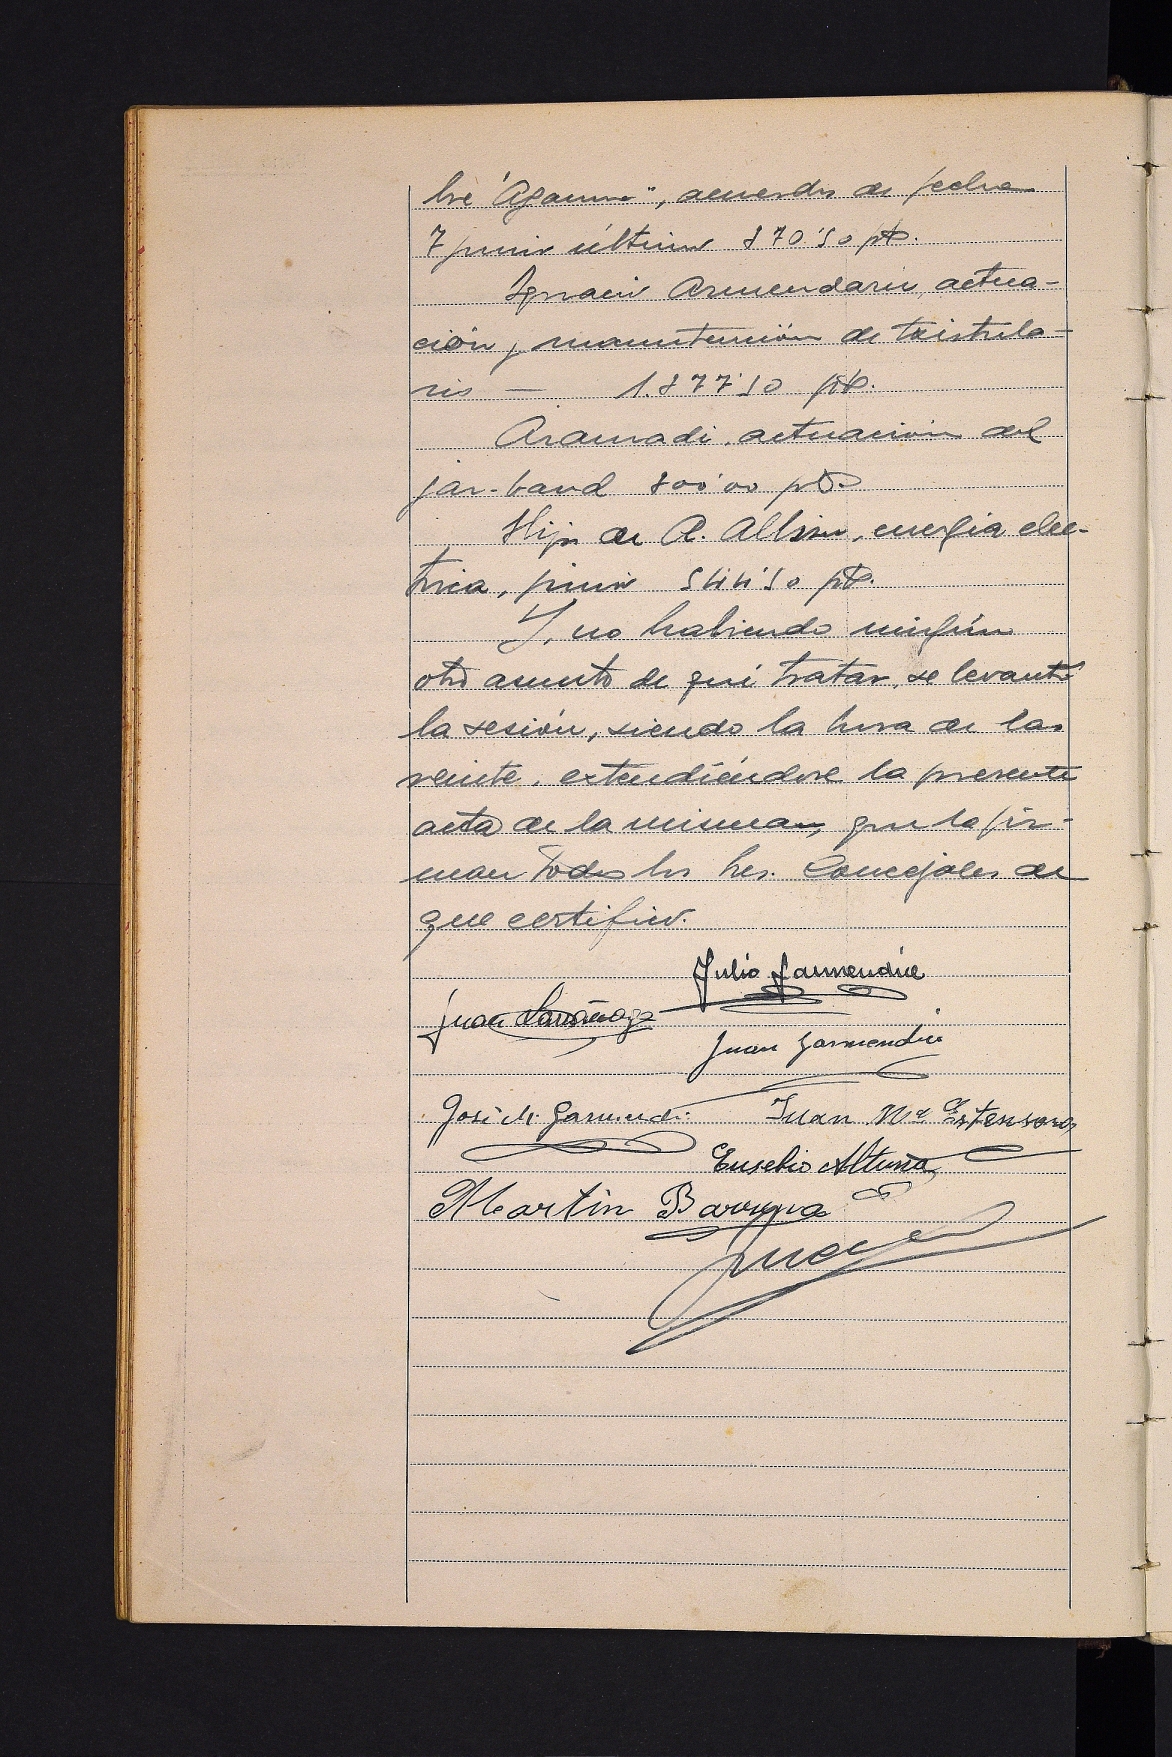 acuerdo de fecha
7 junio último 870'50 pts.
Ignacio Armendariz, actua-
ción y manutención de txistula-
ris — 1.877'50 pts.
Aramadi, actuación del
jaz-band 800'00 pts.
Hijo de A. energía eléc-
trica, junio pts.
Y, no habiendo ningún
otro asunto de qué tratar, se levantó
la sesión, siendo la hora de las
veinte, extendiéndose la presente
acta de la misma, que la fir-
man todos los Sres. Concejales de
que certifico.
Julio Garmendia
Juan Larrañaga
Juan Garmendia
José M. Garmendia Juan Mª Estensoro
Eusebio Altuna
Martin